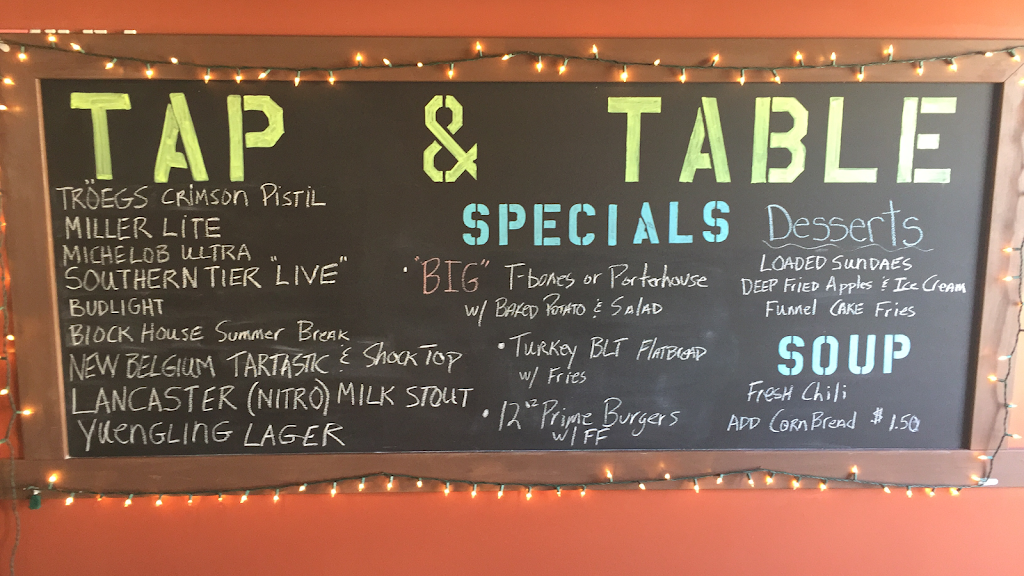 TAP & TABLE
TRÖEGS CRIMSON PISTIL
MILLER LITE
MICHELOB ULTRA
SOUTHERN TIER "LIVE"
BUDLIGHT
BLOCK HOUSE SUMMER BREAK
NEW BELGIUM TARTASTIC & SHOCK TOP
LANCASTER (NITRO) MILK STOUT
YUENGLING LAGER
SPECIALS
• "BIG" T-bones or Porterhouse
w/ BAKED POTATO & SALAD
• TURKEY BLT FLATBREAD
w/ FRIES
• 12 oz Prime Burgers
w/ FF
Desserts
LOADED SUNDAES
DEEP FRIED Apples & Ice Cream
Funnel CAKE Fries
SOUP
FRESH Chili
ADD CORN BREAD $1.50